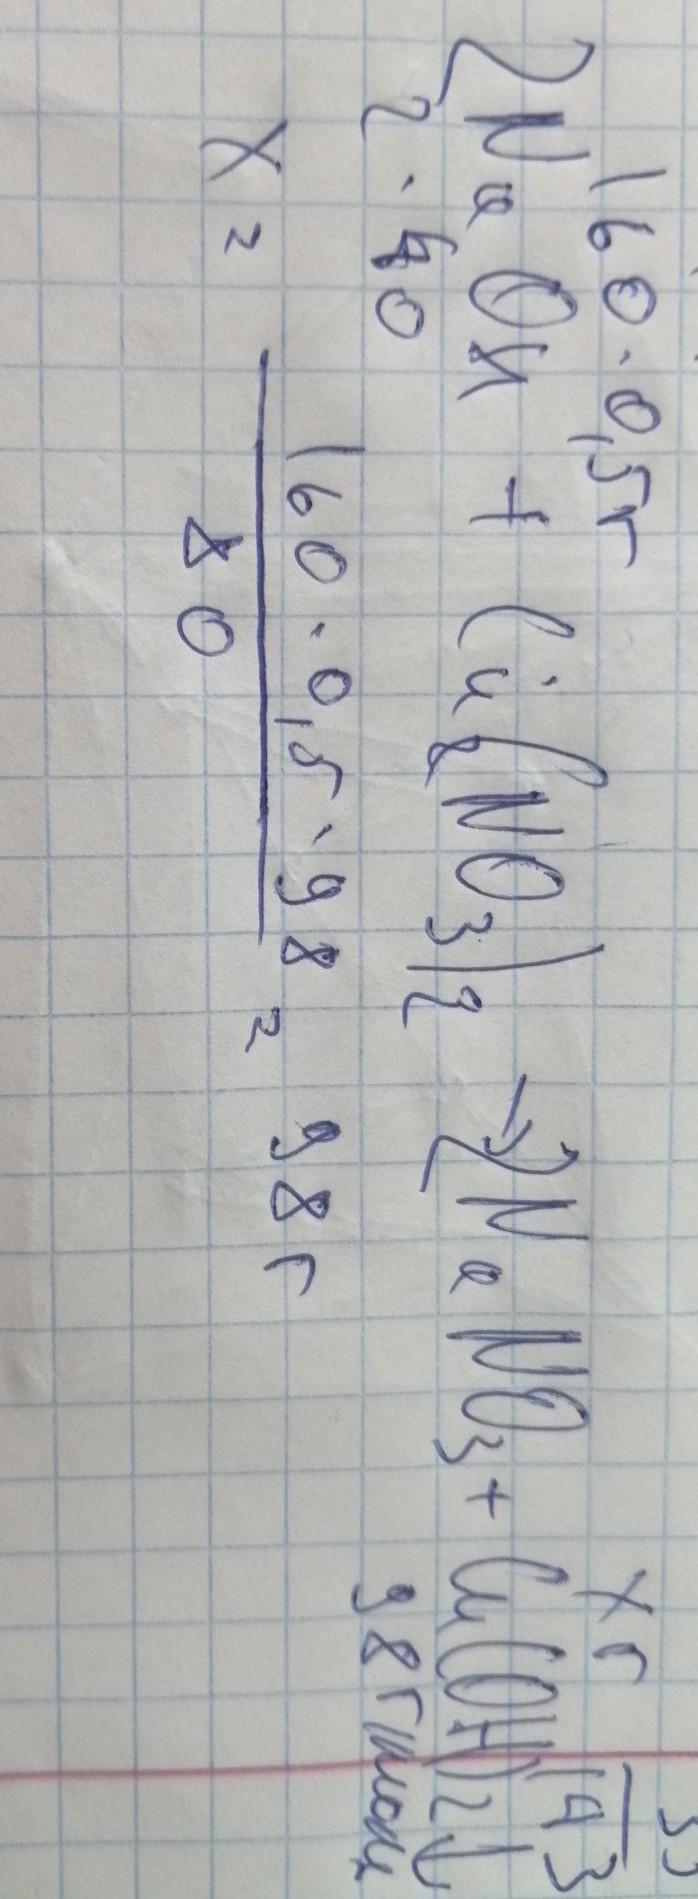 160·0,5г хг
2NaOH + Cu(NO3)2 → 2NaNO3 + Cu(OH)2↓
2·40 98 г/моль
160·0,5·98
х = = 98г
80
143